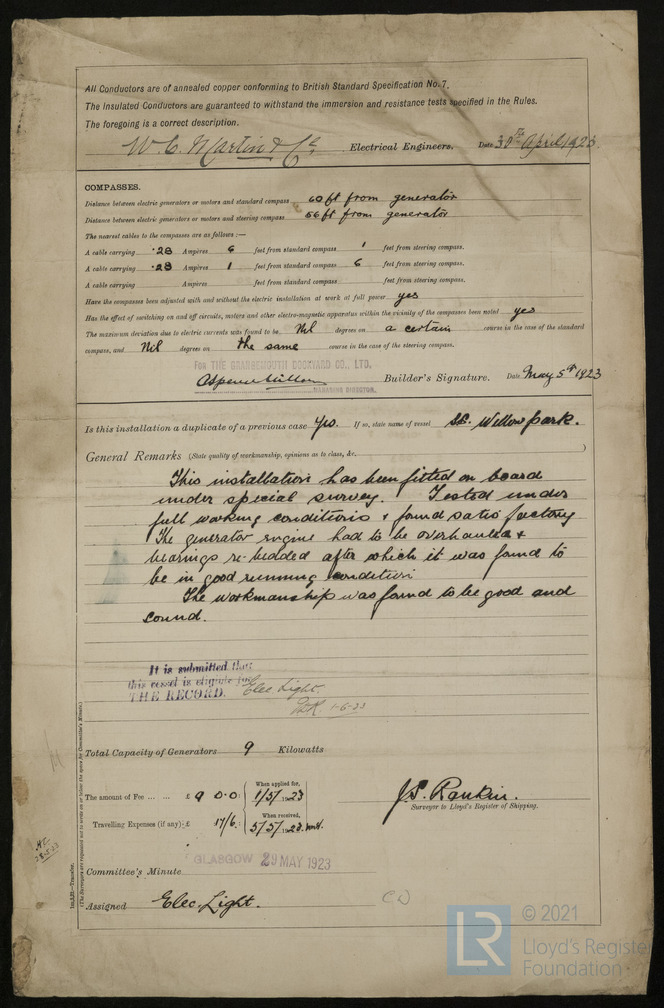 All Conductors are of annealed copper conforming to British Standard Specification No. 7.
The Insulated Conductors are guaranteed to withstand the immersion and resistance tests specified in the Rules.
The foregoing is a correct description.
W. C. Martin & Co Electrical Engineers. Date 30th April 1923.
COMPASSES.
Distance between electric generators or motors and standard compass 60 ft from generator
Distance between electric generators or motors and steering compass 56 ft from generator
The nearest cables to the compasses are as follows :—
A cable carrying ·28 Ampères 6 feet from standard compass 1 feet from steering compass.
A cable carrying ·28 Ampères 1 feet from standard compass 6 feet from steering compass.
A cable carrying Ampères feet from standard compass feet from steering compass.
Have the compasses been adjusted with and without the electric installation at work at full power yes
Has the effect of switching on and off circuits, motors and other electro-magnetic apparatus within the vicinity of the compasses been noted yes
The maximum deviation due to electric currents was found to be Nil degrees on a certain course in the case of the standard
compass, and Nil degrees on the same course in the case of the steering compass.
FOR THE GRANGEMOUTH DOCKYARD CO., LTD.
Builder's Signature. Date May 5th 1923
MANAGING DIRECTOR.
Is this installation a duplicate of a previous case Yes. If so, state name of vessel S.S. Willowpark.
General Remarks (State quality of workmanship, opinions as to class, &c. )
This installation has been fitted on board
under special survey. Tested under
full working conditions & found satisfactory
The generator engine had to be overhauled &
bearings re-bedded after which it was found to
be in good running condition
The workmanship was found to be good and
sound.
It is submitted that
this vessel is eligible for
THE RECORD. Elec Light.
1-6-23
Total Capacity of Generators 9 Kilowatts
The amount of Fee ... ... £ 9 0.0. When applied for, 1/5/1923
Travelling Expenses (if any) £ 17/6. When received, 5/5/1923.
J. S. Rankin.
Surveyor to Lloyd's Register of Shipping.
GLASGOW 29 MAY 1923
Committee's Minute
Assigned Elec. Light.
(The Surveyors are requested not to write on or below the space for Committee's Minute.)
© 2021
LR
Lloyd's Register
Foundation